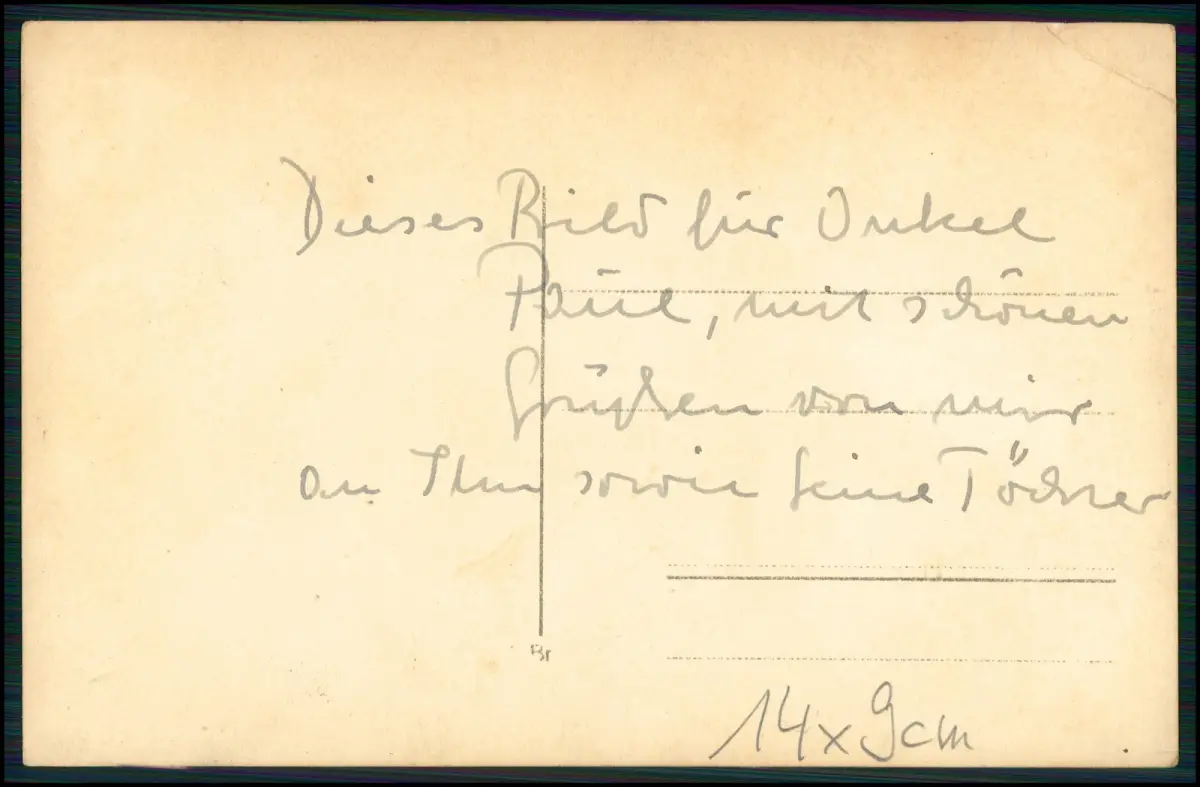 Dieses Bild für Onkel
Paul, mit schönen
Grüßen von mir
an Ihm sowie seine Töchter
Br
14x9cm